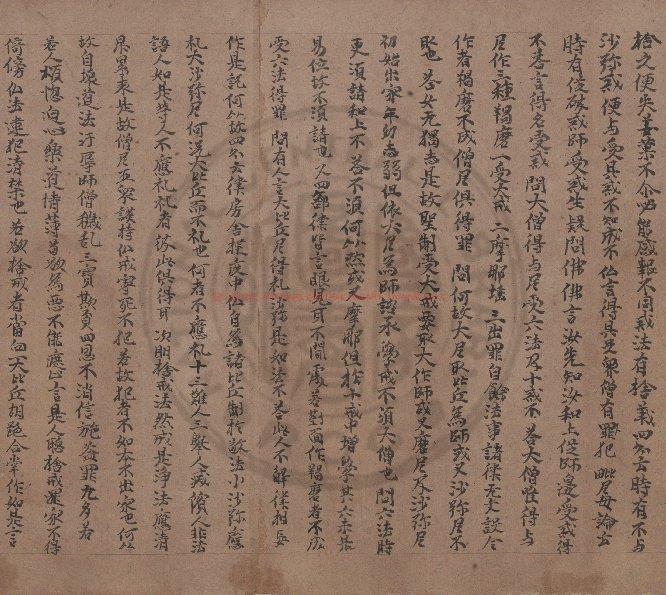 捨之便失善業不令必能感報不同戒法有捨義四分云時有不与
沙弥戒便与受具戒不知成不仏言得具足眾僧有罪犯毗尼母論云
時有從破戒師受戒生疑問佛佛言汝先知汝和上從師邊受戒得
不答言得名受戒問大僧得与尼受六法及十戒不答大僧唯得与
尼作三種羯磨一受大戒二摩耶埵三出罪自餘法事諸律无文設令
作者羯磨不成僧尼俱得罪問何故大尼取比丘為師式叉沙弥尼不
取也答女无獨志是故聖制受大戒要取大作師式叉磨尼及沙弥尼
初始出家年幼志弱但依大尼為師諮承學戒不須大僧也問六法時
更須請和上不答不須何以然式叉摩那但捨十戒中增學其六未是
易位故不須請也又四部律皆言眼見耳不聞處若對面作羯磨者不應
受六法得罪問有人言大比丘尼得礼沙弥是如法不答此人不解律相妄
作是說何以故四分云律房舍揵度中仏自為諸比丘制捨敬法小沙弥尼應
礼大沙弥尼何況大比丘而不礼也何者不應礼十三難人三舉人滅擯人非法
語人如是等人不應礼礼者彼此俱得耳次明捨戒法然戒是淨法應清
昇累表是故僧尼五眾護持仏戒寧死不犯若故犯者不如本不出家也何以
故自壞道法汙辱師僧穢乱三寶欺負四恩不消信施登罪九多若
若人煩惱迫心樂道情薄習欲為惡不能應止言是人聽捨戒還家不得
倚傍仏法連犯清禁也若欲捨戒者當向一大比丘胡跪合掌作如是言